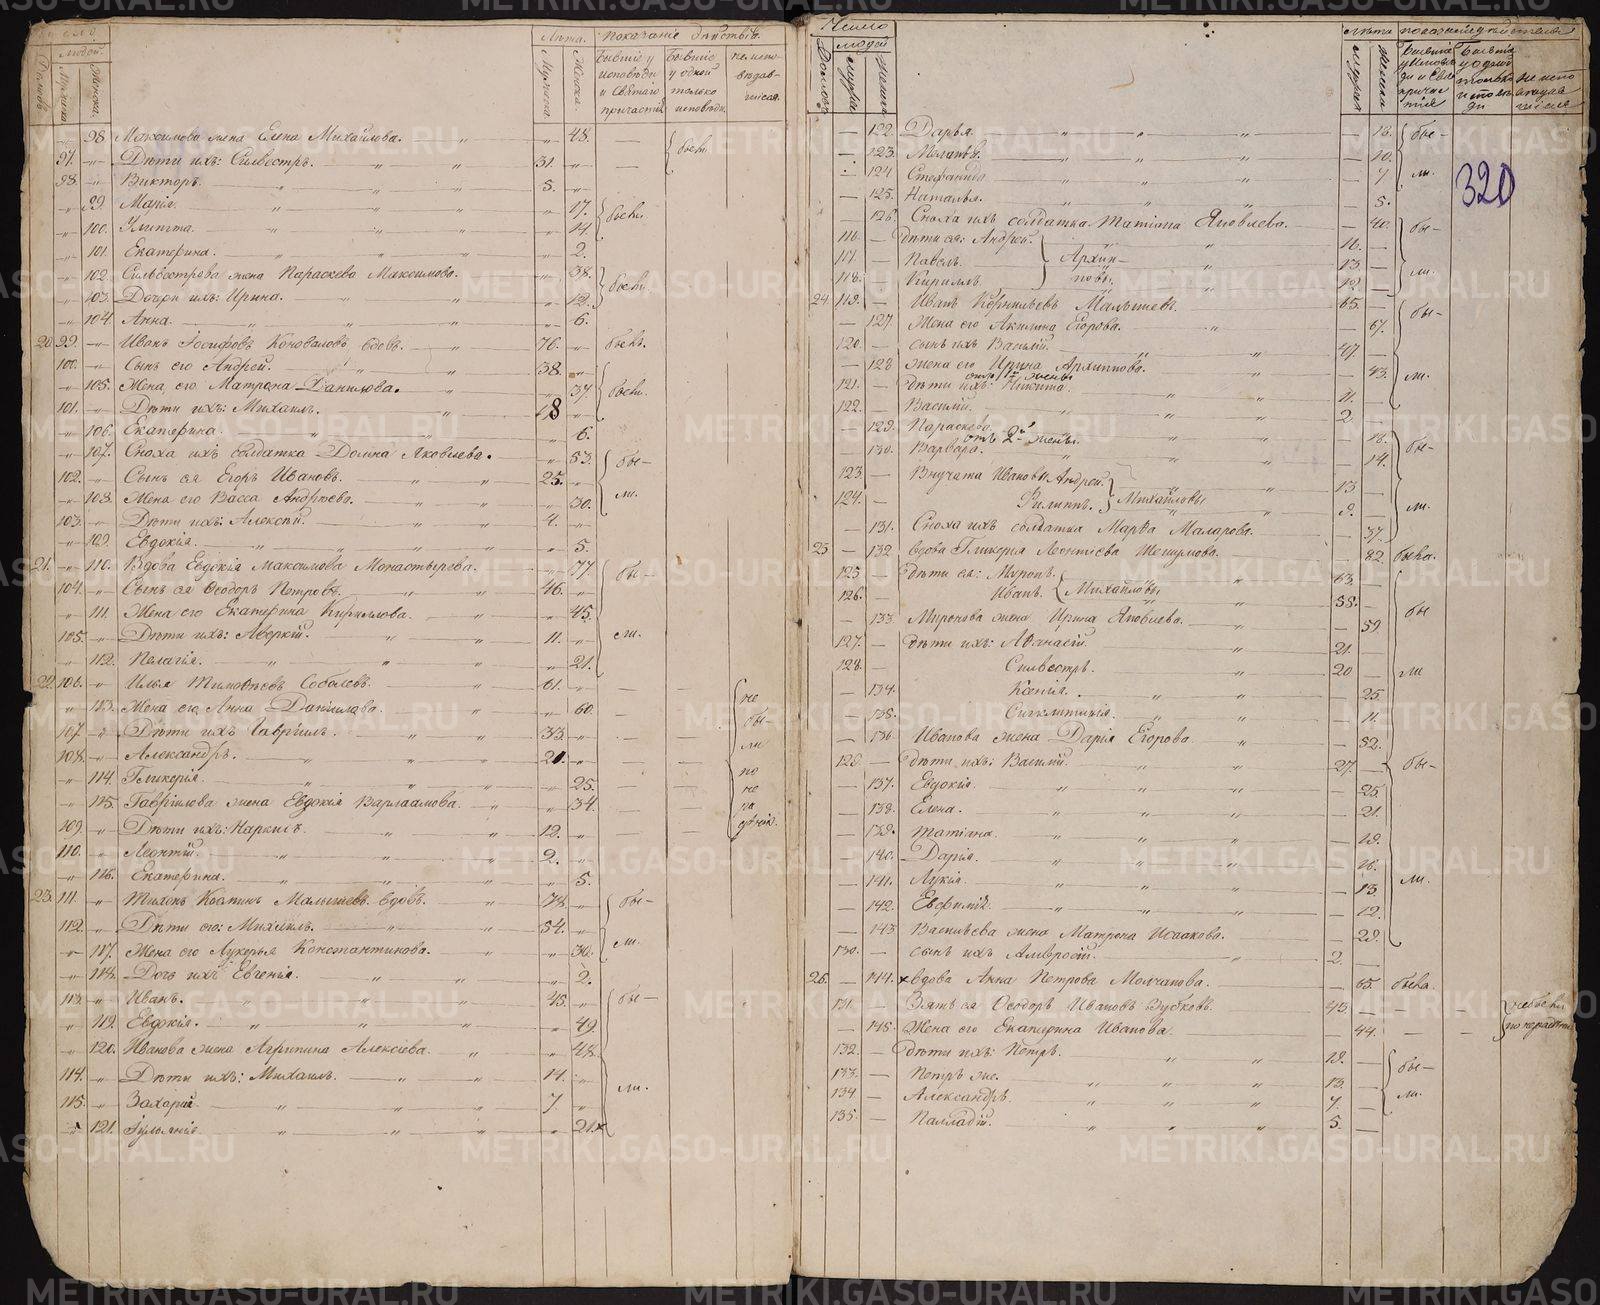 Число
Людей.
Домовъ
Мужеска
Женска.
Лѣта.
Мужеска.
Женска.
Показаніе дѣйствій.
Бывшіе у исповѣди и Святаго причастія
Бывшіе у одной только исповѣди.
не исповѣдавшіеся.
98 Максимова жена Елена Михайлова. 48. были
97. Дѣти ихъ: Сильвестръ. 31.
98. Викторъ. 5.
99 Марія. 17. были
100. Улитта. 11.
101. Екатерина. 2.
102. Сильвестрова жена Параскева Максимова. 38. были
103. Дочери ихъ: Ирина. 12.
104. Анна. 6.
20 99. Иванъ Іосифовъ Коноваловъ вдовъ. 76. былъ
100. Сынъ его Андрей. 38.
105. Жена его Матрона Данилова. 37. были
101. Дѣти ихъ: Михаилъ. 8
106. Екатерина. 6.
107. Сноха ихъ солдатка Домна Яковлева. 53. бы-
102. Сынъ ея Егоръ Ивановъ. 25.
108. Жена его Васса Андреева. 30. ли.
103. Дѣти ихъ: Алексѣй. 4.
109. Евдокія. 5.
21. 110. Вдова Евдокія Максимова Монастырева. 77. бы-
104. Сынъ ея Ѳеодоръ Петровъ. 46.
111. Жена его Екатерина Кириллова. 45.
105. Дѣти ихъ: Аверкій. 11. ли.
112. Пелагія. 21.
22. 106. Илья Тимоѳеевъ Соболевъ. 61. не
113. Жена его Анна Даниилова. 60. бы-
107. Дѣти ихъ Гавріилъ. 33. ли
108. Александръ. 20. по
114. Гликерія. 25. не
115. Гавріилова жена Евдокія Варлаамова. 34. ра
109. Дѣти ихъ: Наркисъ. 12.
110. Леонтій. 2.
116. Екатерина. 5.
23. 111. Тихонъ Козминъ Малышевъ вдовъ. 78. бы-
112. Дѣти его: Михаилъ. 54.
117. Жена его Лукерья Константинова. 30. ли.
118. Дочь ихъ Евгенія. 2.
113. Иванъ. 45. бы-
119. Евдокія. 49
120. Иванова жена Агрипина Алексіева. 48.
114. Дѣти ихъ: Михаилъ. 14. ли.
115. Захарій. 7
121. Іуліанія. 21.
Число
людей
Домовъ
мужеска
женска
лѣта
мужеска
женска
показаніе дѣйствія
Бывшіе у исповѣди и Свя. причастія
Бывшіе у одной только исповѣди
не исповѣдавшіеся
320
122. Дарья. 13. бы-
123. Меланья. 10.
124 Стефанида 7 ли.
125. Наталья. 5.
126. Сноха ихъ солдатка Татіана Яковлева. 40. бы-
116. Дѣти ея: Андрей. 16.
117. Павелъ. Архиповы. 13. ли.
118. Кириллъ. 12.
24 119. Иванъ Корнильевъ Малышевъ 65. бы-
127. Жена его Акилина Егорова. 67.
120. сынъ ихъ Василій. 47.
128 жена его Ирина Архиппова. 43. ли.
121. Дѣти ихъ: отъ 1й жены Никита. 11.
122. Василій. 2
129. Параскева. 18. бы-
130. Варвара. отъ 2й жены. 14.
123. Внучата Ивановы Андрей. 13
124. Филиппъ. Михайловы 9. ли.
131. Сноха ихъ солдатка Марѳа Маларова. 37.
25 132. вдова Гликерія Леонтіева Шешукова. 82. была.
125 дѣти ея: Миронъ. 63.
126. Иванъ. Михайловы 58.
133. Миронова жена Ирина Яковлева. 59 бы
127. дѣти ихъ: Аѳанасій. 21.
128. Сильвестръ. 20 ли
134. Ксенія. 25
135. Сигклитикія. 11.
136 Иванова жена Дарія Егорова 52.
129. дѣти ихъ: Василій. 27. бы-
137. Евдокія. 25.
138. Елена. 21.
139. Татіана. 19.
140. Дарія. 16.
141. Лукія. 13 ли.
142. Евѳимія. 12.
143. Васильева жена Матрона Исаакова. 29.
130. сынъ ихъ Амвросій. 2.
26. 144. вдова Анна Петрова Молчанова. 65. была.
131. Зять ея Ѳеодоръ Ивановъ Зубковъ. 45. не были
145. Жена его Екатерина Иванова. 44. по нерадѣнію
132. дѣти ихъ: Петръ. 19. бы-
133. Петръ же. 13.
134 Александръ. 7. ли.
135. Палладій. 5.